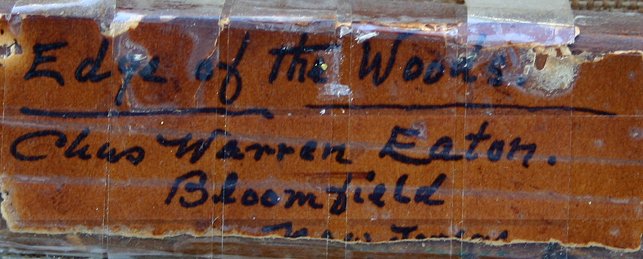 Edge of the Woods.
Chas Warren Eaton.
Bloomfield
New Jersey